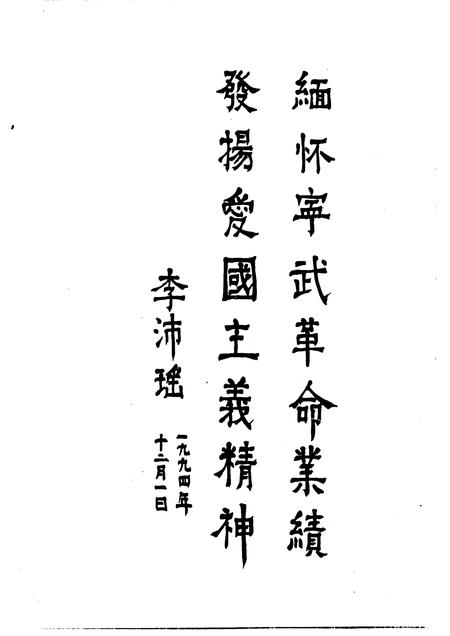 緬怀寕武革命業績
發揚愛國主義精神
李沛瑶
一九九四年
十二月一日